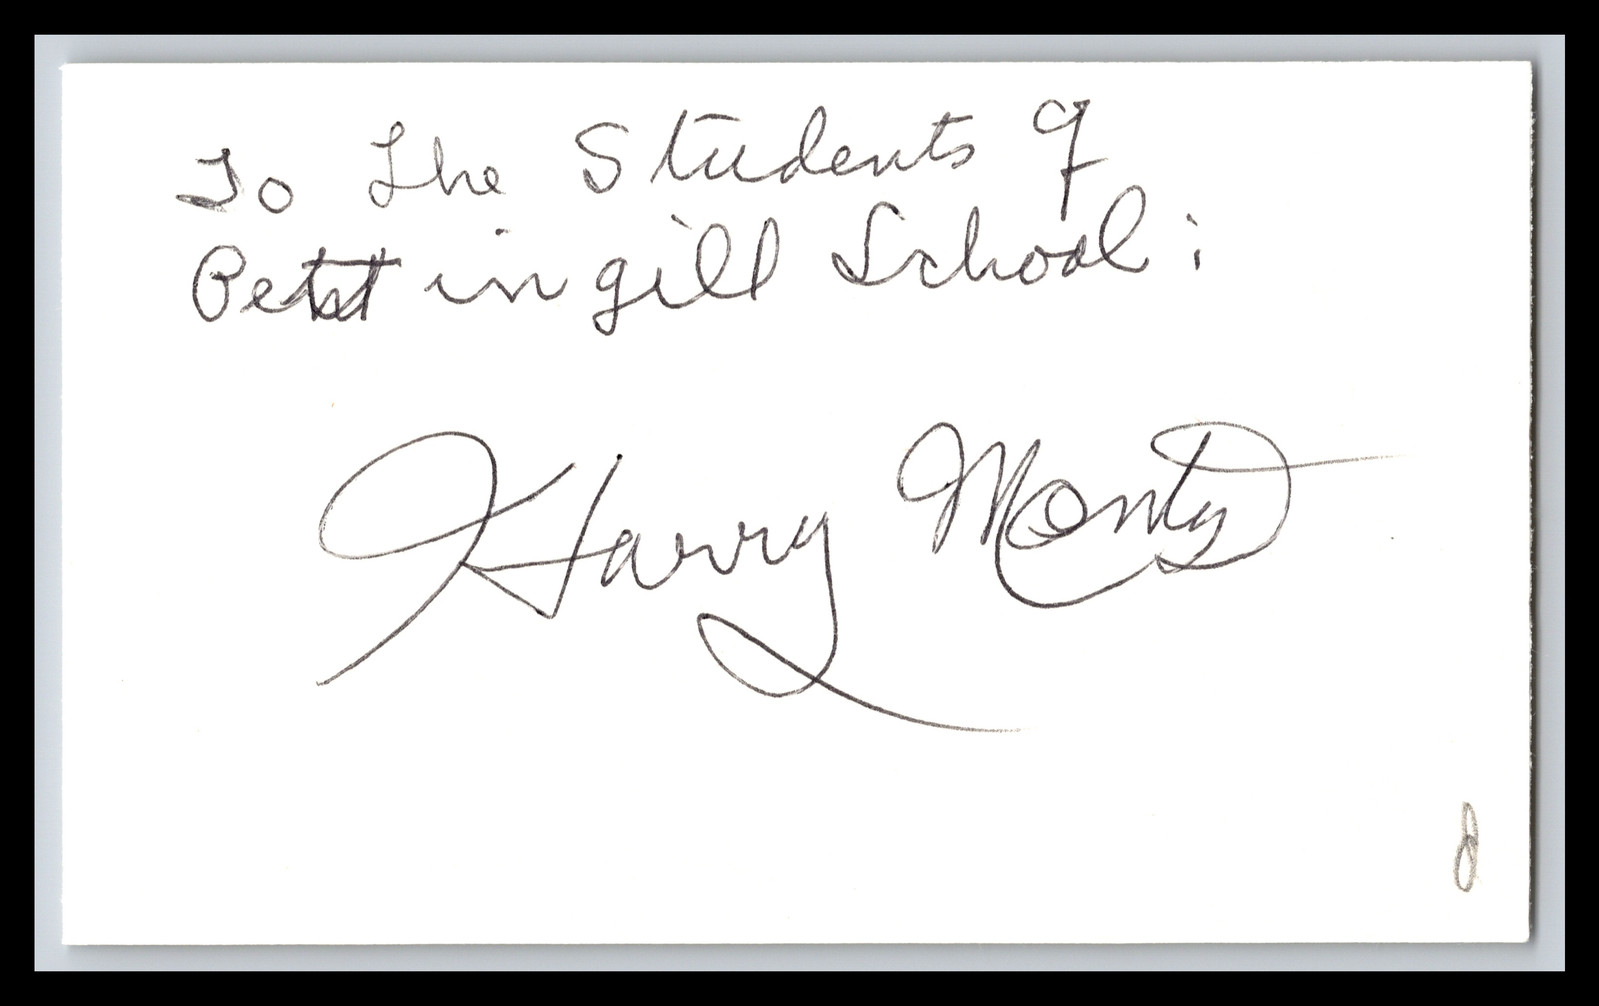 To The Students of
Pettingill School:
Harry Monty